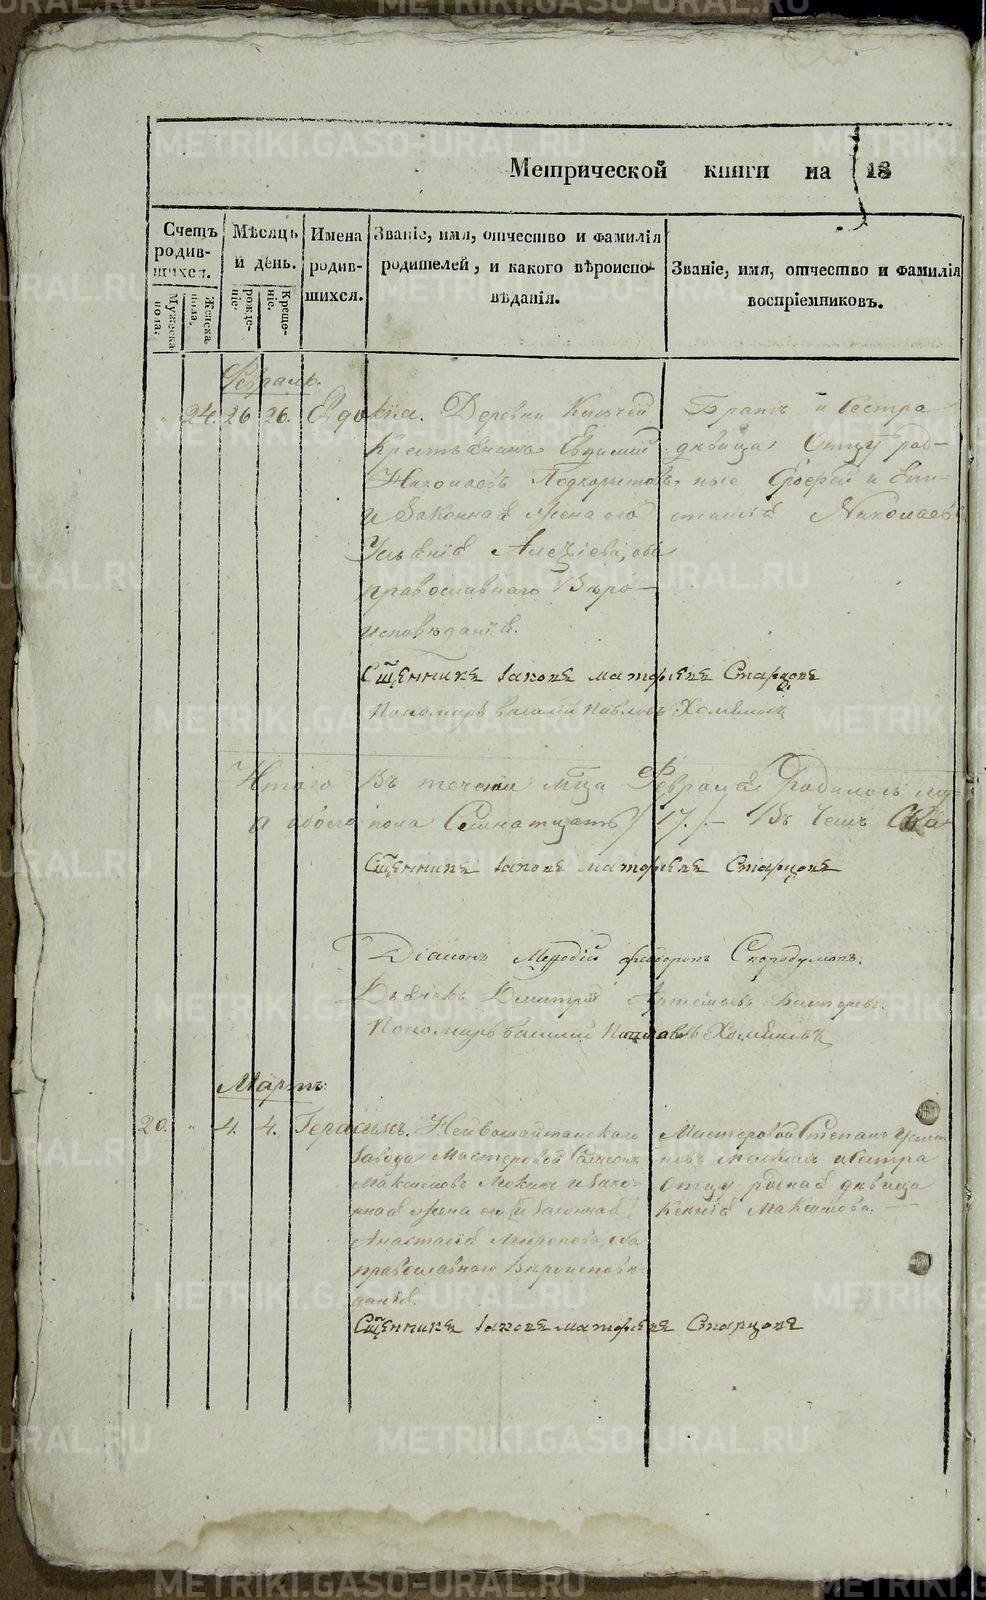 Метрической книги на 18
Счетъ родив-шихся.
Мужеска пола.
Женска пола.
Мѣсяцъ и день.
рожде-ніе.
Креще-ніе.
Имена родив-шихся.
Званіе, имя, отчество и фамилія
родителей, и какого вѣроиспо-
вѣданія.
Званіе, имя, отчество и фамилія
воспріемниковъ.
Февраль.
24. 26. 26. Евдокіа. Деревни Ключей
Крестьянинъ Евдимий
Николаевъ Подкорытовъ
и Законная жена его
Ульяніѣ Алеѯіева, оба
православнаго Вѣро-
исповѣданіѣ.
Братъ и Сестра
дѣвица Отцу род-
ные Ерофей и
Николаевы
Сщ҃енникъ Іаковъ Матфеевъ Старцовъ
Пономарь Василій Павловъ Хомяковъ
Итого Въ течени мц҃а Февраля Родилось му
а обоего пола Семнатцать /17./ — Въ Чемъ
Сщ҃енникъ Іаковъ Матфеевъ Старцовъ
Діаконъ Меѳодій Федоровъ Скородумовъ.
Дьячекъ Димитрий Артемьевъ
Пономарь Василий Павловъ Хомяковъ
Мартъ:
20. " 4. 4. Герасимъ. Нейвошайтанскаго
завода Мастеровой Самсонъ
Максимовъ Мокинъ и зако-
нная жена ея [и законная]
Анастасіѣ Миронова, оба
православнаго Вѣроисповѣ-
даніѣ.
Мастеровой Степанъ Устин
новъ и Сестра
Отцу родная дѣвица
Ксеніѣ Максимова. —
Сщ҃енникъ Іаковъ Матфеевъ Старцовъ
METRIKI.GASO-URAL.RU